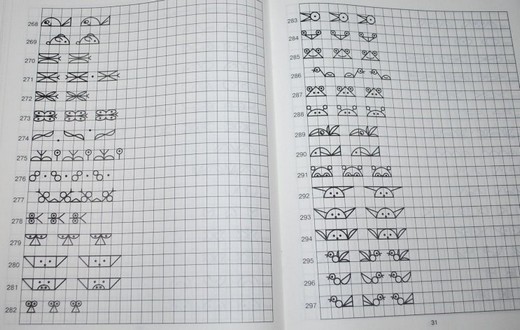 268
269
270
271
272
273
274
275
276
277
278
279
280
281
282
283
284
285
286
287
288
289
290
291
292
293
294
295
296
297
31